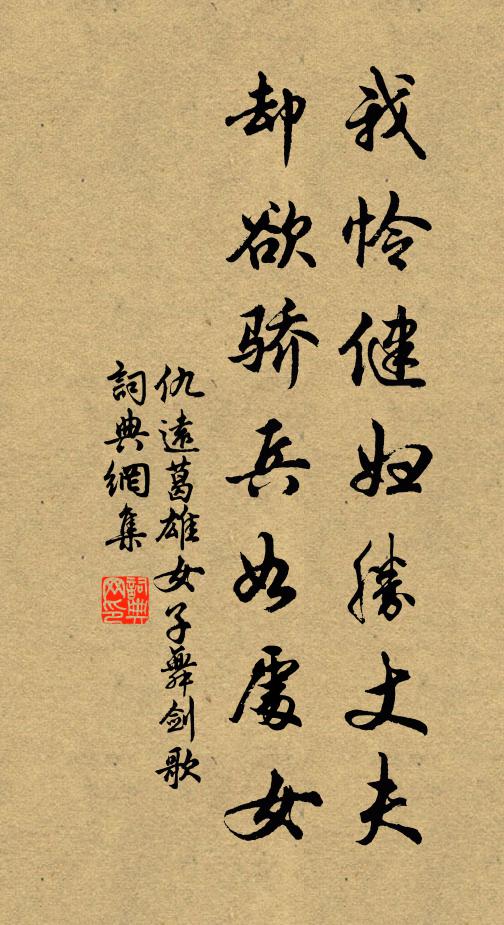 我怜健妇勝丈夫
却欲骄兵如處女
仇遠葛雄女子舞剑歌
詞典網集
詞典網印